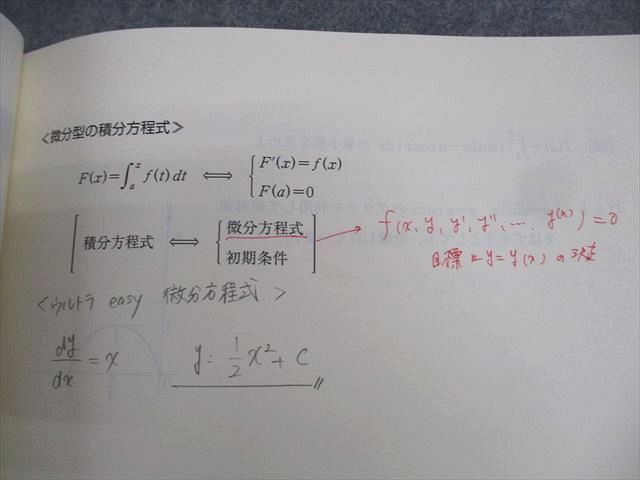 <微分型の積分方程式>
F(x)=∫ₐˣ f(t)dt ⟺ { F′(x)=f(x)
F(a)=0
積分方程式 ⟺ { 微分方程式
初期条件
→ f(x, y, y′, y″, … y⁽ⁿ⁾)=0
目標は y=y(x) の決定
<ウルトラ easy 微分方程式>
dy/dx = x
y = 1/2 x² + C